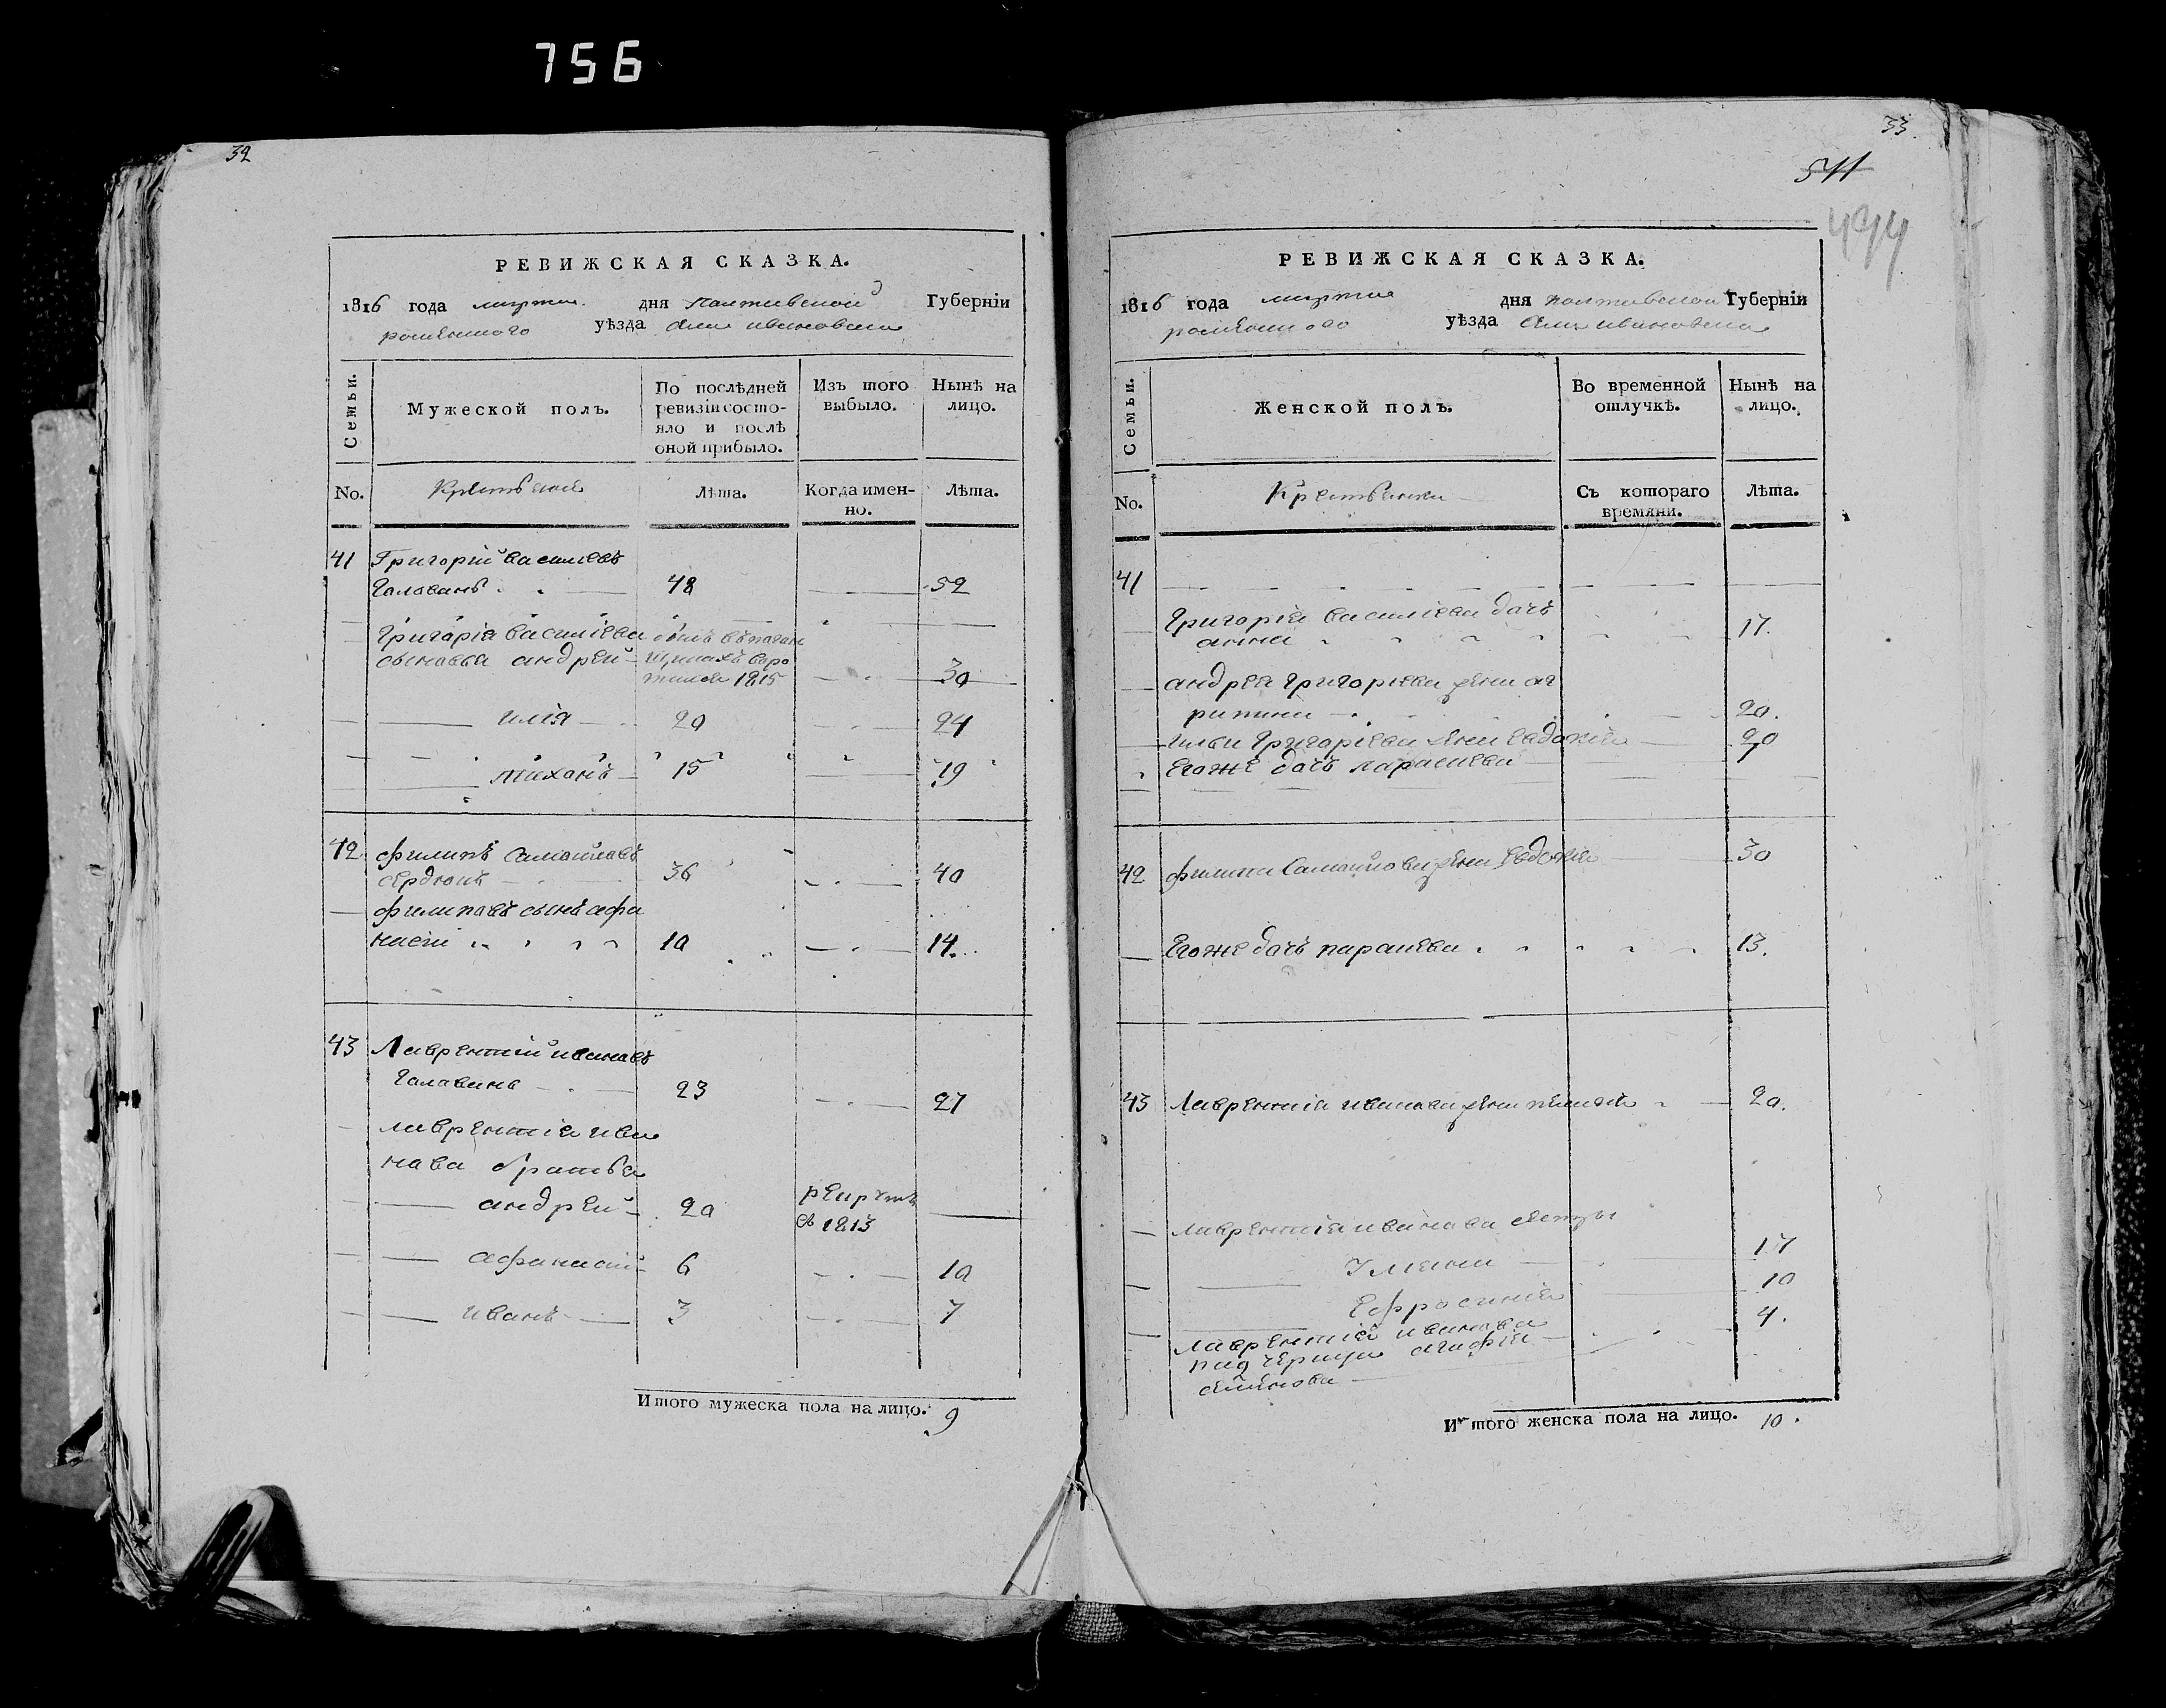 756
32
РЕВИЖСКАЯ СКАЗКА.
1816 года марта дня полтавской Губерніи
роменского уѣзда села ивановки
Семьи.
Мужеской полъ.
По послѣдней ревизіи состояло и послѣ оной прибыло.
Изъ того выбыло.
Нынѣ на лицо.
No.
Лѣта.
Когда именно.
Лѣта.
41 Григорій василіевъ
Голованъ 48 52
Григорія василіева
сыновья андрей 1815 30
илія 20 24
тихонъ 15 19
42 филипъ самойловъ
сердюкъ 36 40
филиповъ сынъ афа
насій 10 14.
43 Лаврентій ивановъ
Голованъ 23 27
лаврентія ива
нова братья
андрей 20 въ 1813
афанасій 6 10
иванъ 3 7
Итого мужеска пола на лицо. 9
33.
541
494
РЕВИЖСКАЯ СКАЗКА.
1816 года марта дня полтавской Губерніи
роменского уѣзда села ивановки
Семьи.
Женской полъ.
Во временной отлучкѣ.
Нынѣ на лицо.
No.
Съ котораго времяни.
Лѣта.
41
Григорія василіева дочь
анна 17.
андрея григоріева жена аг
рипина 20.
ильи григоріева жена евдокія 20
Егоже дочь параскева
42 филипа самойлова жена евдокія 30
Егоже дочь параскева 13.
43 Лаврентія иванова жена 20.
лаврентія иванова сестры
уляна 17
Ефросинія 10
лаврентія иванова 4.
падчерица агафія
семенова
Итого женска пола на лицо. 10.